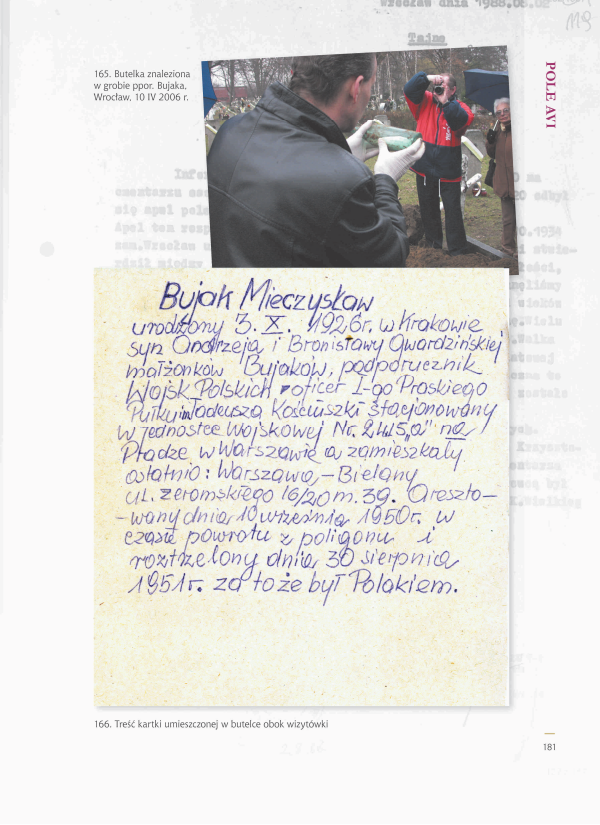 Wrocław dnia 1988.08.02
119
Tajne
165. Butelka znaleziona
w grobie ppor. Bujaka.
Wrocław, 10 IV 2006 r.
POLE AVI
Bujak Mieczysław
urodzony 3. X. 1926r. w Krakowie
syn Andrzeja i Bronisławy Gwardzińskiej
małżonków Bujaków, podporucznik
Wojsk Polskich oficer I-go Praskiego
Pułku im Tadeusza Kościuszki stacjonowany
w jednostce Wojskowej Nr. 2445 „a" na
Pradze w Warszawie a zamieszkały
ostatnio: Warszawa, – Bielany
ul. Żeromskiego 16/20 m. 39. Areszto-
-wany dnia 10 września 1950r. w
czasie powrotu z poligonu i
roztrzelony dnia 30 sierpnia
1951r. za to że był Polakiem.
166. Treść kartki umieszczonej w butelce obok wizytówki
181